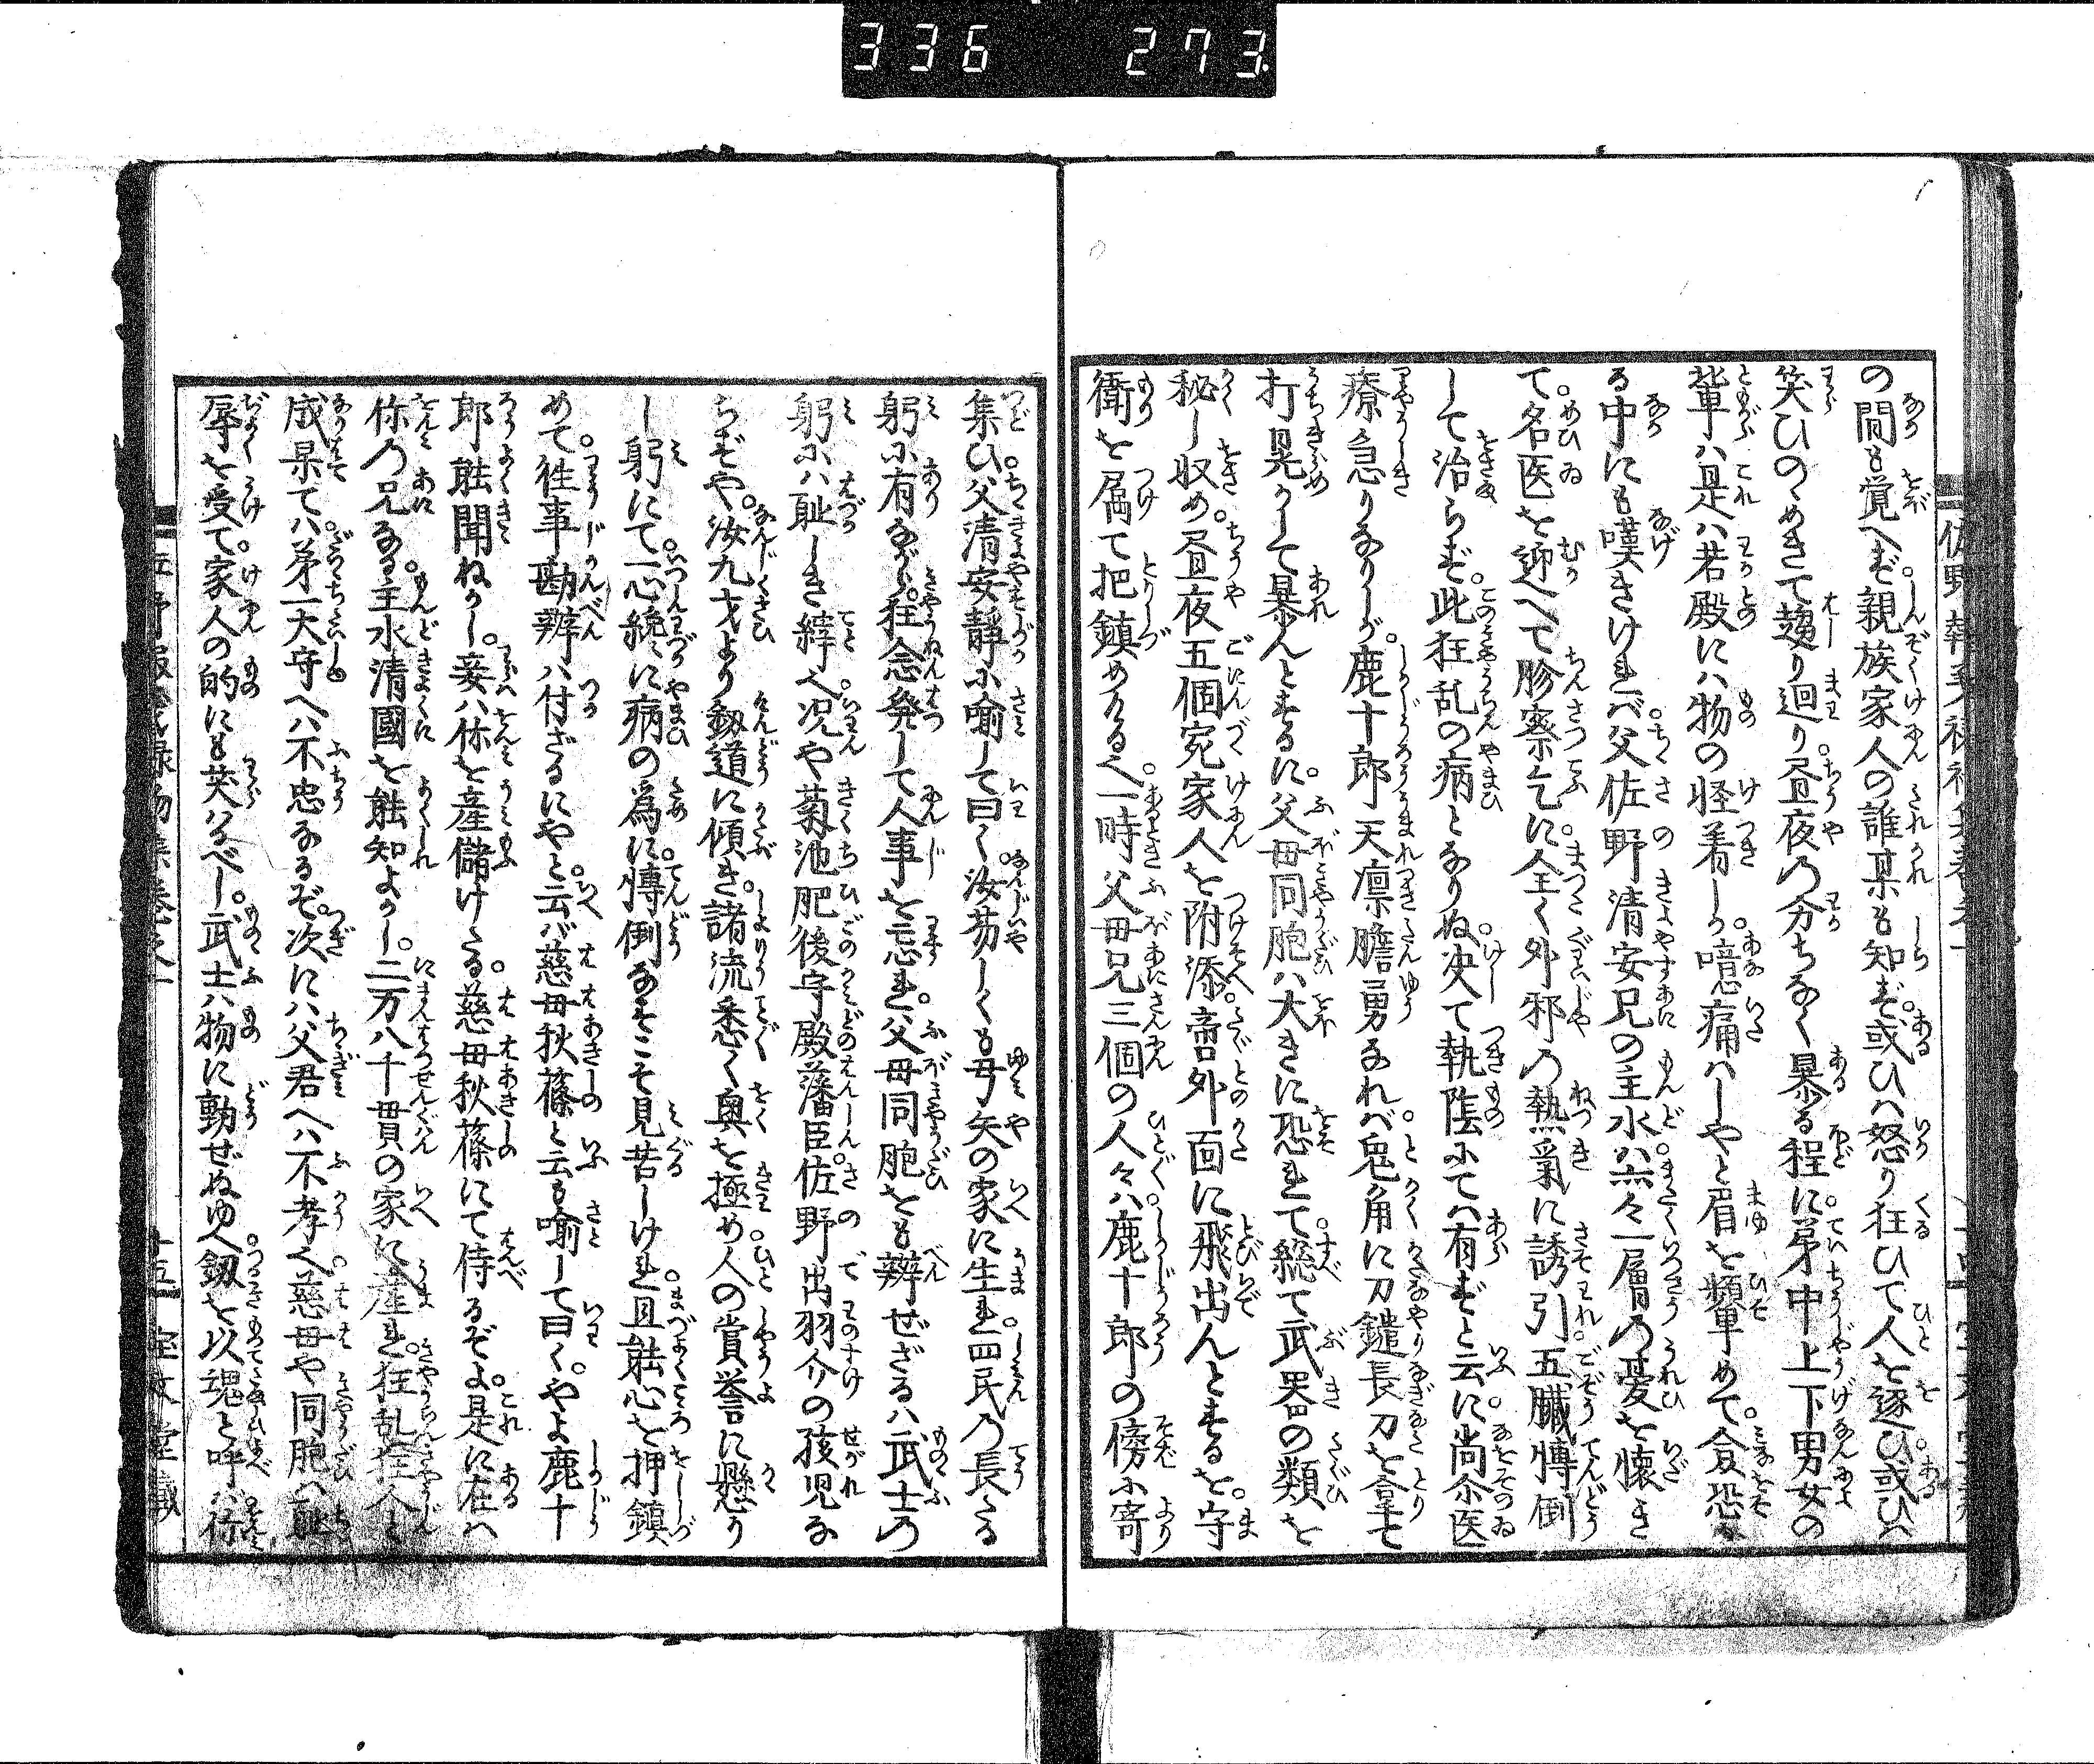 336 273
の間も覚へず親族家人の誰某も知ず。或ひハ怒り狂ひて人を逐ひ或ひハ
笑ひのゝめきて趨り廻り。昼夜の分ちなく暴る程に。弟中上下男女の
輩ハ是ハ若殿にハ物の怪着しか。噫痛ハしやと眉を顰めて。僉恐な
る中にも嘆きけれバ。父佐野清安兄の主水ハ亦々一層の憂を懐き
て。名医を迎へて胗察乞に。全く外邪の熱気に誘引。五臓慱倒
して治らず。此狂乱の病となりぬ。决て執陰にてハ有ずと云に。尚余医
療急りなりしが。鹿十郎天凛膽勇なれバ。兎角に刀鑓長刀を拿て
打晃かして暴んとするに。父母同胞ハ大きに恐れて。総て武器の類を
秘し収め。昼夜五個宛家人を附添。帝外面に飛出んとするを。守
衛を属て把鎮めける。一時父母兄三個の人々ハ鹿十郎の傍に寄
集ひ。父清安静に喩して曰く。汝苟しくも弓矢の家に生れ。四民の長たる
躬に有ながら。狂念発して人事を忘れ。父母同胞をも辨ぜざるハ。武士の
躬にハ耻しき縡也。况や菊池肥後守殿藩臣。佐野出羽介の孩児な
らずや。汝九才より釼道に傾き。諸流悉く奥を極め人の賞誉に懸り
し躬にて。一心纔に病の為に慱倒なすこそ見苦しけれ。且能心を押鎮
めて。往事勘辨ハ付ざるにやと。云バ慈母秋篠と云も喩して曰く。やよ鹿十
郎能聞ねかし。妾ハ你を産儲けたる。慈母秋篠にて侍るぞよ。是に在ハ
你の兄なる。主水清國を能知よかし。二万八千貫の家に産れ。狂乱狂人と
成果てハ。第一大守へハ不忠なるぞ。次にハ父君へハ不孝也。慈母や同胞ハ耻
辱を受て。家人の的にも笑ハるべし。武士ハ物に動ぜぬゆへ。釼を以魂と呼バ。你